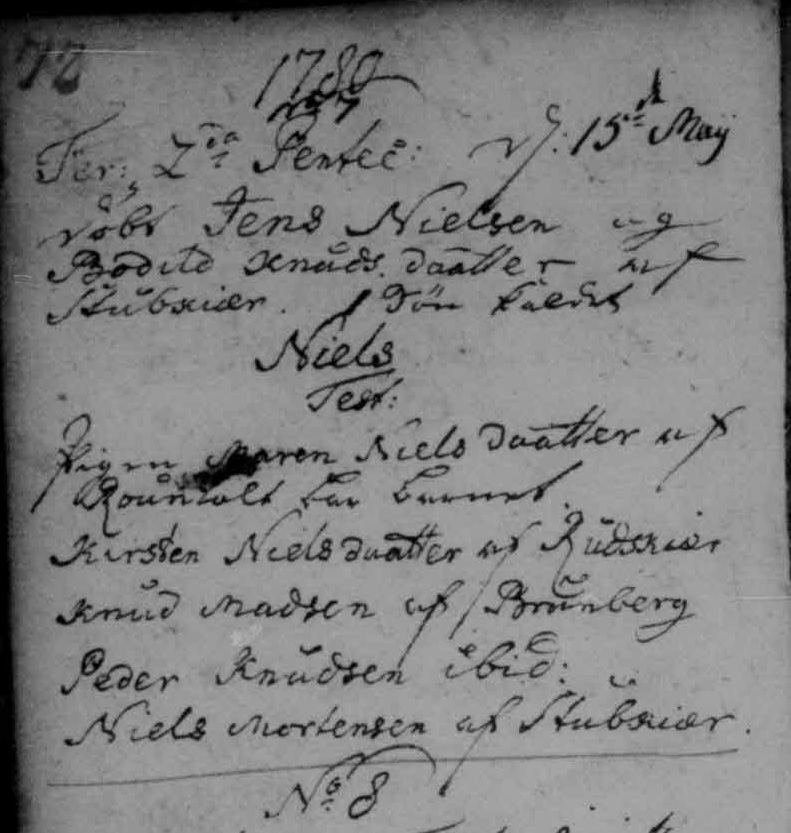 72
1780
No 7
Fer: 2da Pentec: d: 15de Maÿ
döbt Jens Nielsen og
Bodild Knuds daatter af
Stubkiær. 1 Sön kaldet
Niels
Test:
Pigen Maren Niels daatter af
bar Barnet.
Kirsten Nielsdaatter af Rudskiær
Knud Madsen af Brunberg
Peder Knudsen ibid:
Niels Mortensen af Stubkiær.
No 8